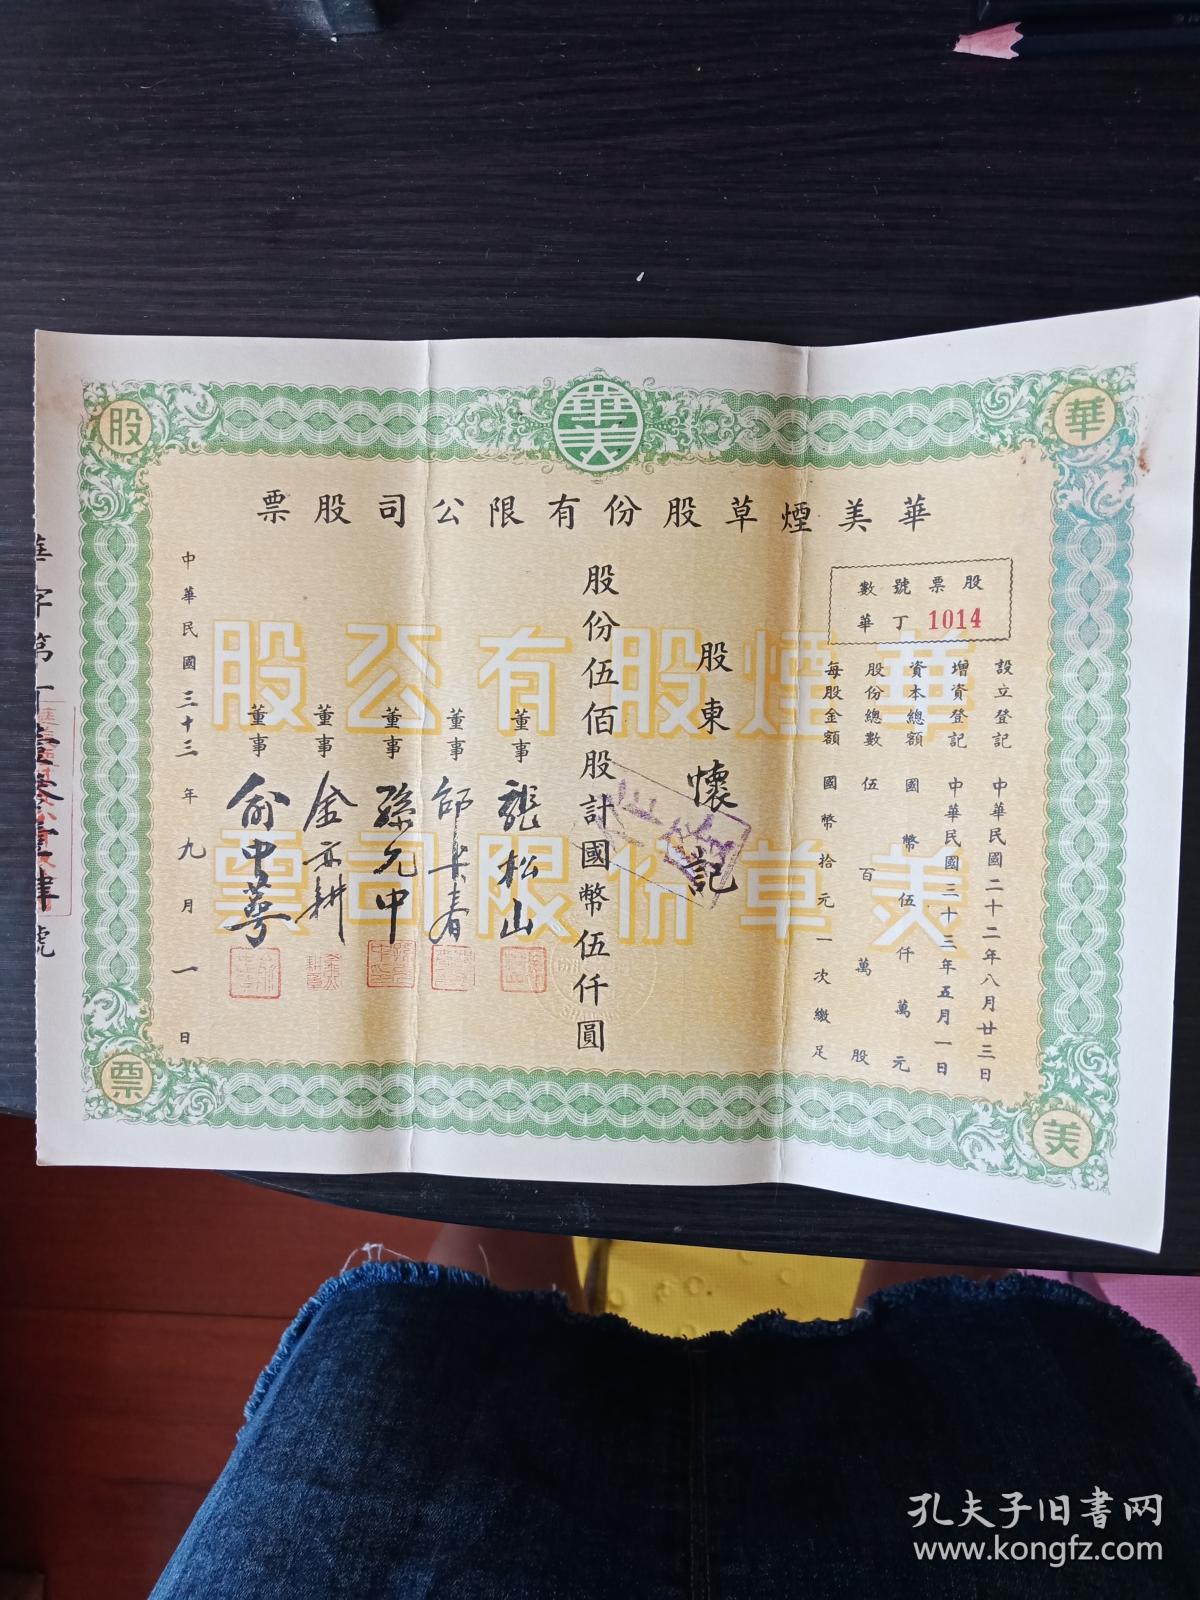 華美
華
美
股
票
華美煙草股份有限公司股票
股票號數
華丁 1014
設立登記 中華民國二十二年八月廿三日
增資登記 中華民國三十三年五月一日
資本總額 國幣伍仟萬元
股份總數 伍百萬股
每股金額 國幣拾元一次繳足
股東 懷記
股份伍佰股計國幣伍仟圓
董事 龔松山
董事
董事 孫允中
董事 金亦耕
董事 俞中萼
中華民國三十三年九月一日
華煙股有公股
美草份限司票
華字第丁壹零壹肆號
孔夫子旧书网
www.kongfz.com